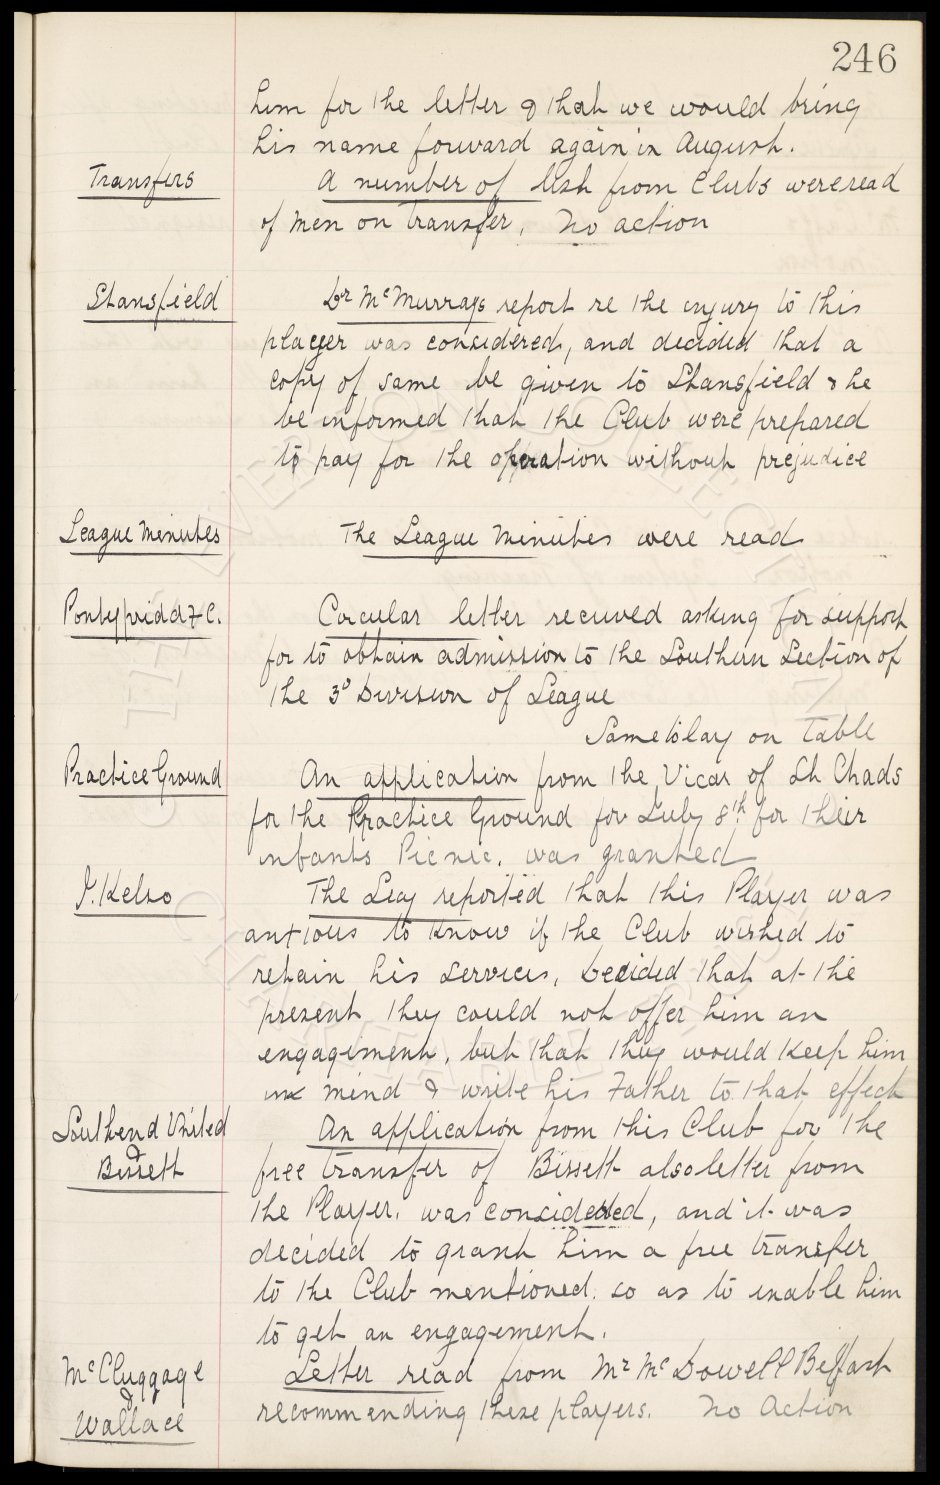 246
him for the letter & that we would bring
his name forward again in August.
Transfers
A number of lish from Clubs were read
of men on transfer, No action
Stansfield
Dr McMurrays report re the injury to this
player was considered, and decided that a
copy of same be given to Stansfield & he
be informed that the Club were prepared
to pay for the operation without prejudice
League Minutes
The League Minutes were read
Pontypridd F C.
Circular letter received asking for support
for to obtain admission to the Southern Section of
the 3d Division of League
Same to lay on table
Practice Ground
An application from the Vicar of St Chads
for the Practice Ground for July 8th for their
infants Picnic, was granted
J. Kelso
The Secy reported that this Player was
anxious to know if the Club wished to
retain his services, Decided that at the
present they could not offer him an
engagement, but that they would keep him
in mind & write his Father to that effect
Southend United
&
Bissett
An application from this Club for the
free transfer of Bissett also letter from
the Player, was considered, and it was
decided to grant him a free transfer
to the Club mentioned, so as to enable him
to get an engagement.
McCluggage
&
Wallace
Letter read from Mr McDowell Belfast
recommending these players. No Action
EVERTON COLLECTION
CHARITABLE TRUST